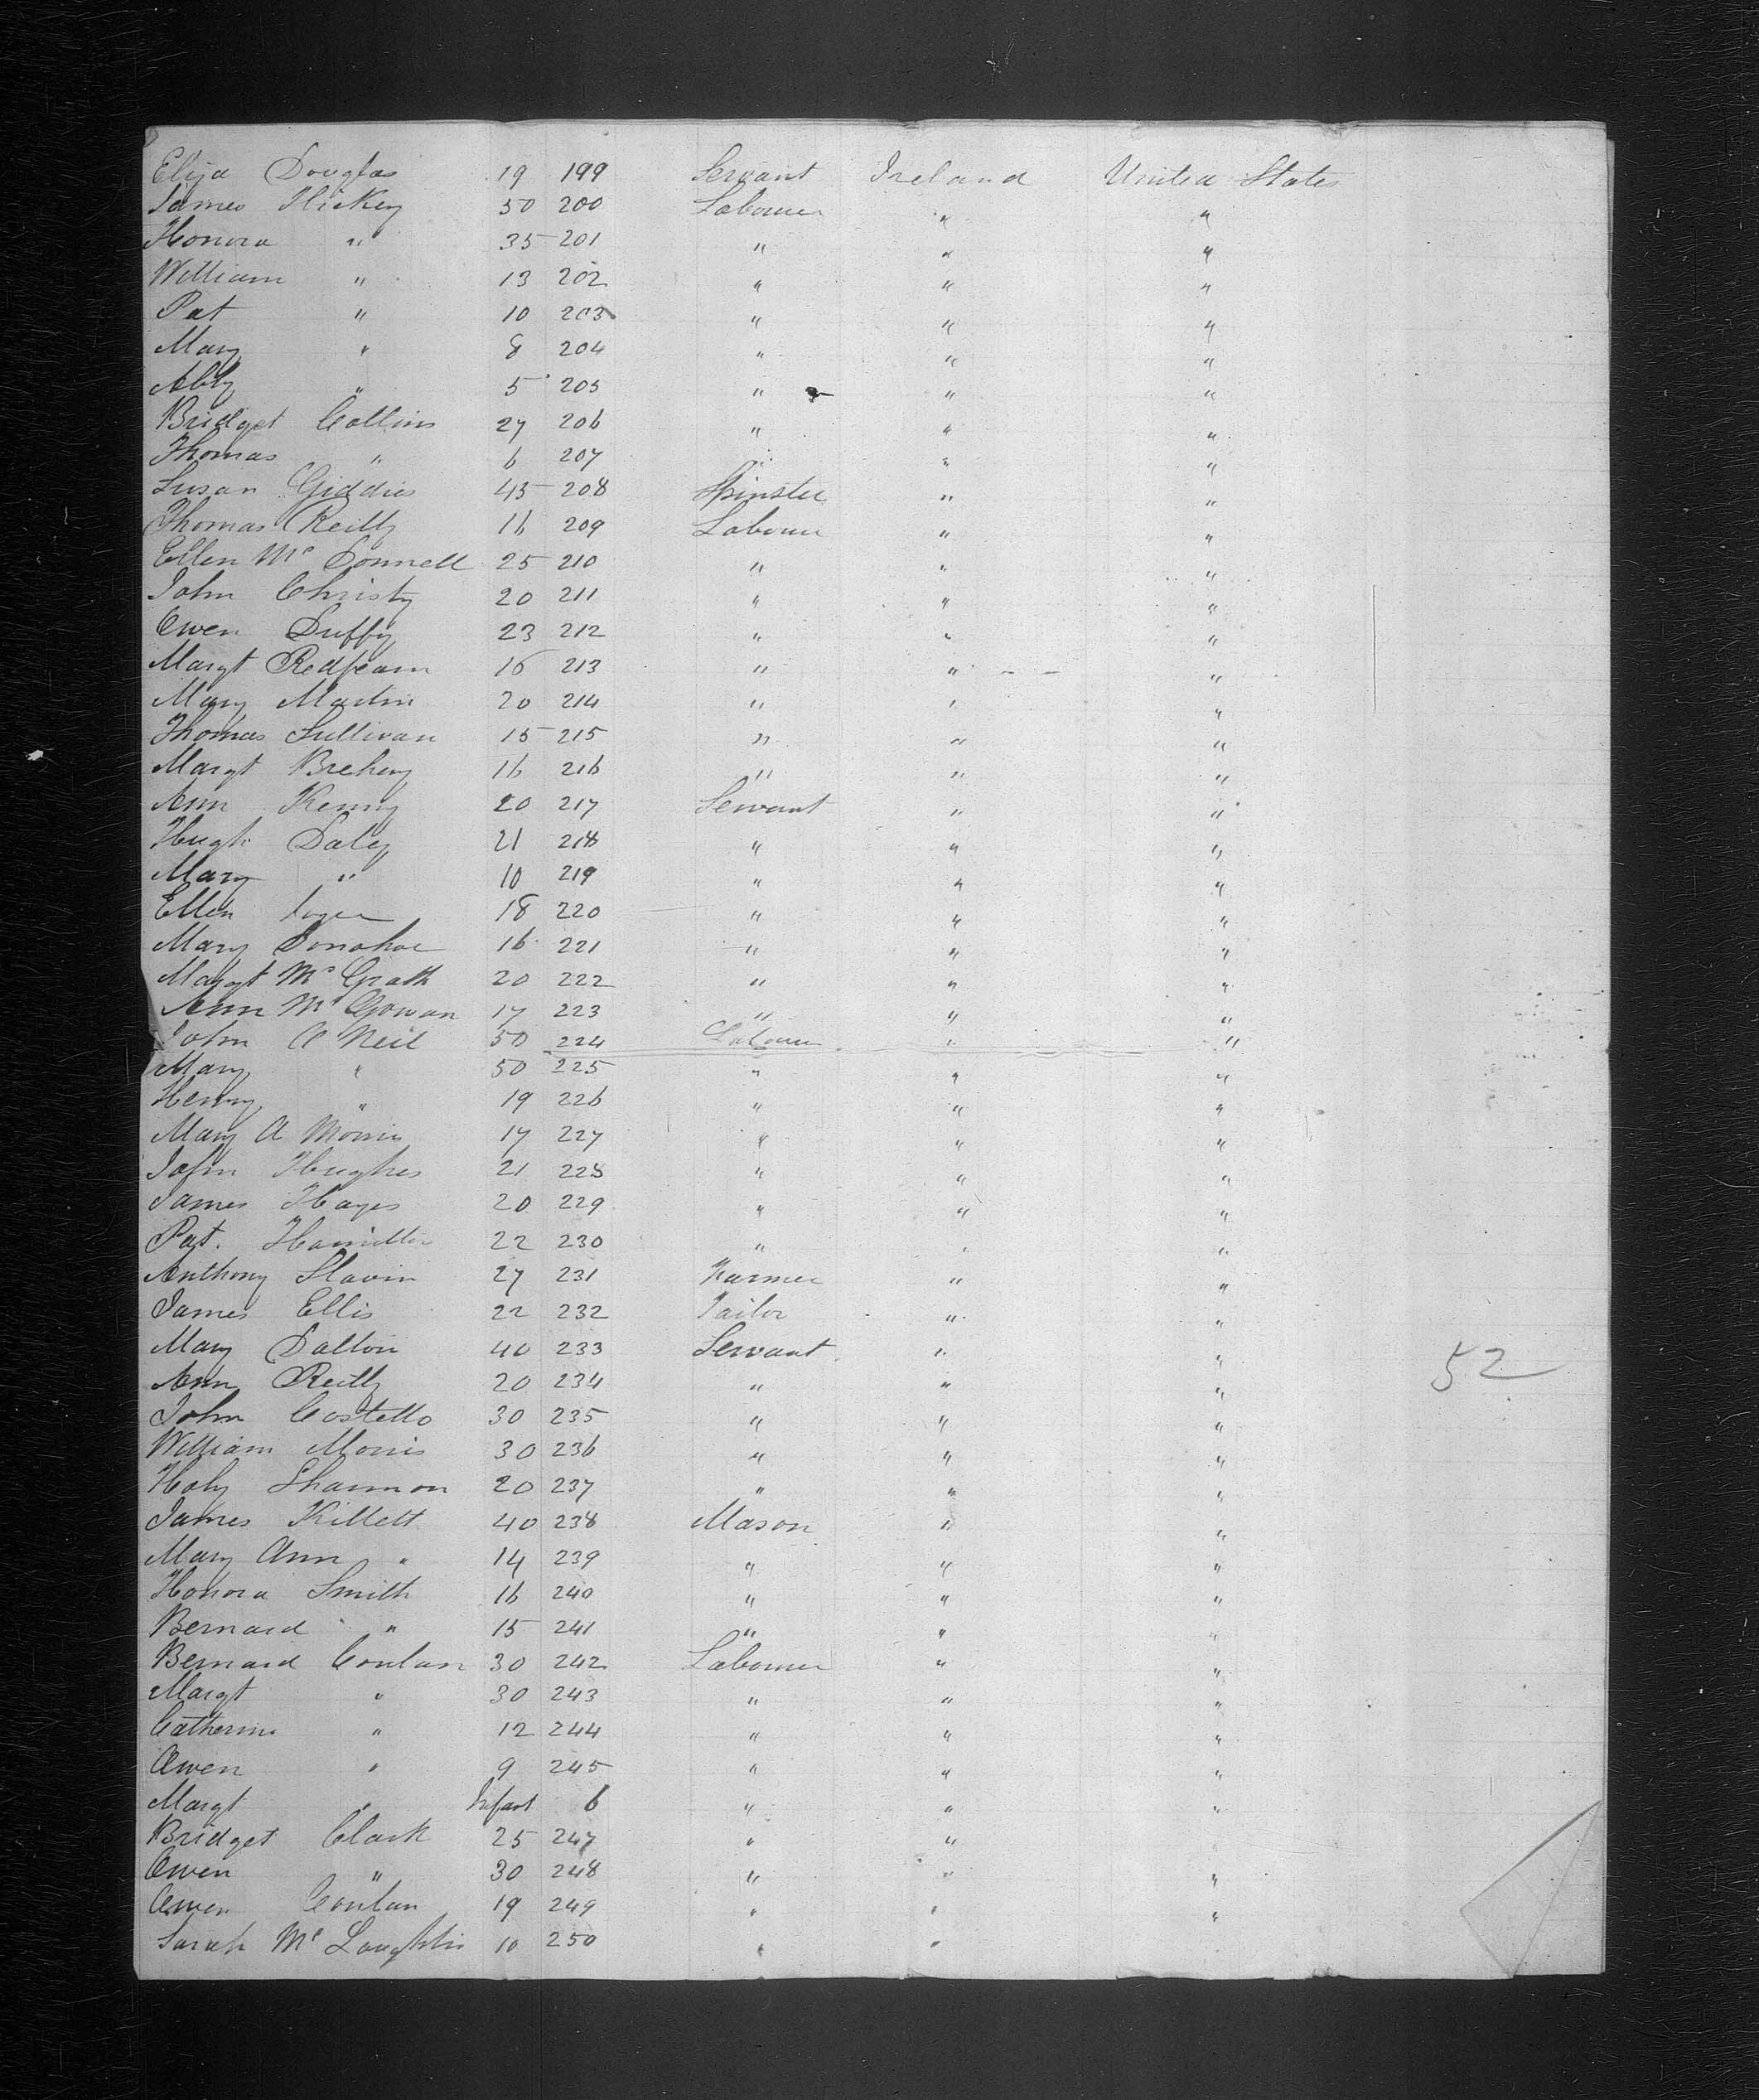 Eliza Douglas 19 199 Servant Ireland United States
James Hickey 50 200 Labourer " "
Honora " 35 201 " " "
William " 13 202 " " "
Pat " 10 203 " " "
Mary " 8 204 " " "
Abby " 5 205 " " "
Bridget Collins 27 206 " " "
Thomas " 6 207 " " "
Susan Giddies 45 208 Spinster " "
Thomas Reilly 16 209 Labourer " "
Ellen Mc Donnell 25 210 " " "
John Christy 20 211 " " "
Owen Duffy 23 212 " " "
Margt Redfearn 16 213 " " "
Mary Martin 20 214 " " "
Thomas Sullivan 15 215 " " "
Margt Breheny 16 216 " " "
Ann Kenny 20 217 Servant " "
Hugh Daley 21 218 " " "
Mary " 10 219 " " "
Ellen 18 220 " " "
Mary Donohoe 16 221 " " "
Margt Mc Grath 20 222 " " "
Ann Mc Gowan 17 223 " " "
John O Neil 50 224 Labourer " "
Mary " 50 225 " " "
Henry " 19 226 " " "
Mary A Morris 17 227 " " "
John Hughes 21 228 " " "
James Hayes 20 229 " " "
Pat. Hamilton 22 230 " " "
Anthony Slavin 27 231 Farmer " "
James Ellis 22 232 Tailor " "
Mary Dalton 40 233 Servant " "
52
Ann Reilly 20 234 " " "
John Costello 30 235 " " "
William Morris 30 236 " " "
Shannon 20 237 " " "
James Killett 40 238 Mason " "
Mary Ann " 14 239 " " "
Honora Smith 16 240 " " "
Bernard " 15 241 " " "
Bernard Conlan 30 242 Labourer " "
Margt " 30 243 " " "
Catherine " 12 244 " " "
Owen " 9 245 " " "
Margt " Infant 6 " " "
Bridget Clark 25 247 " " "
Owen " 30 248 " " "
Owen Conlan 19 249 " " "
Sarah Mc Loughlin 10 250 " "